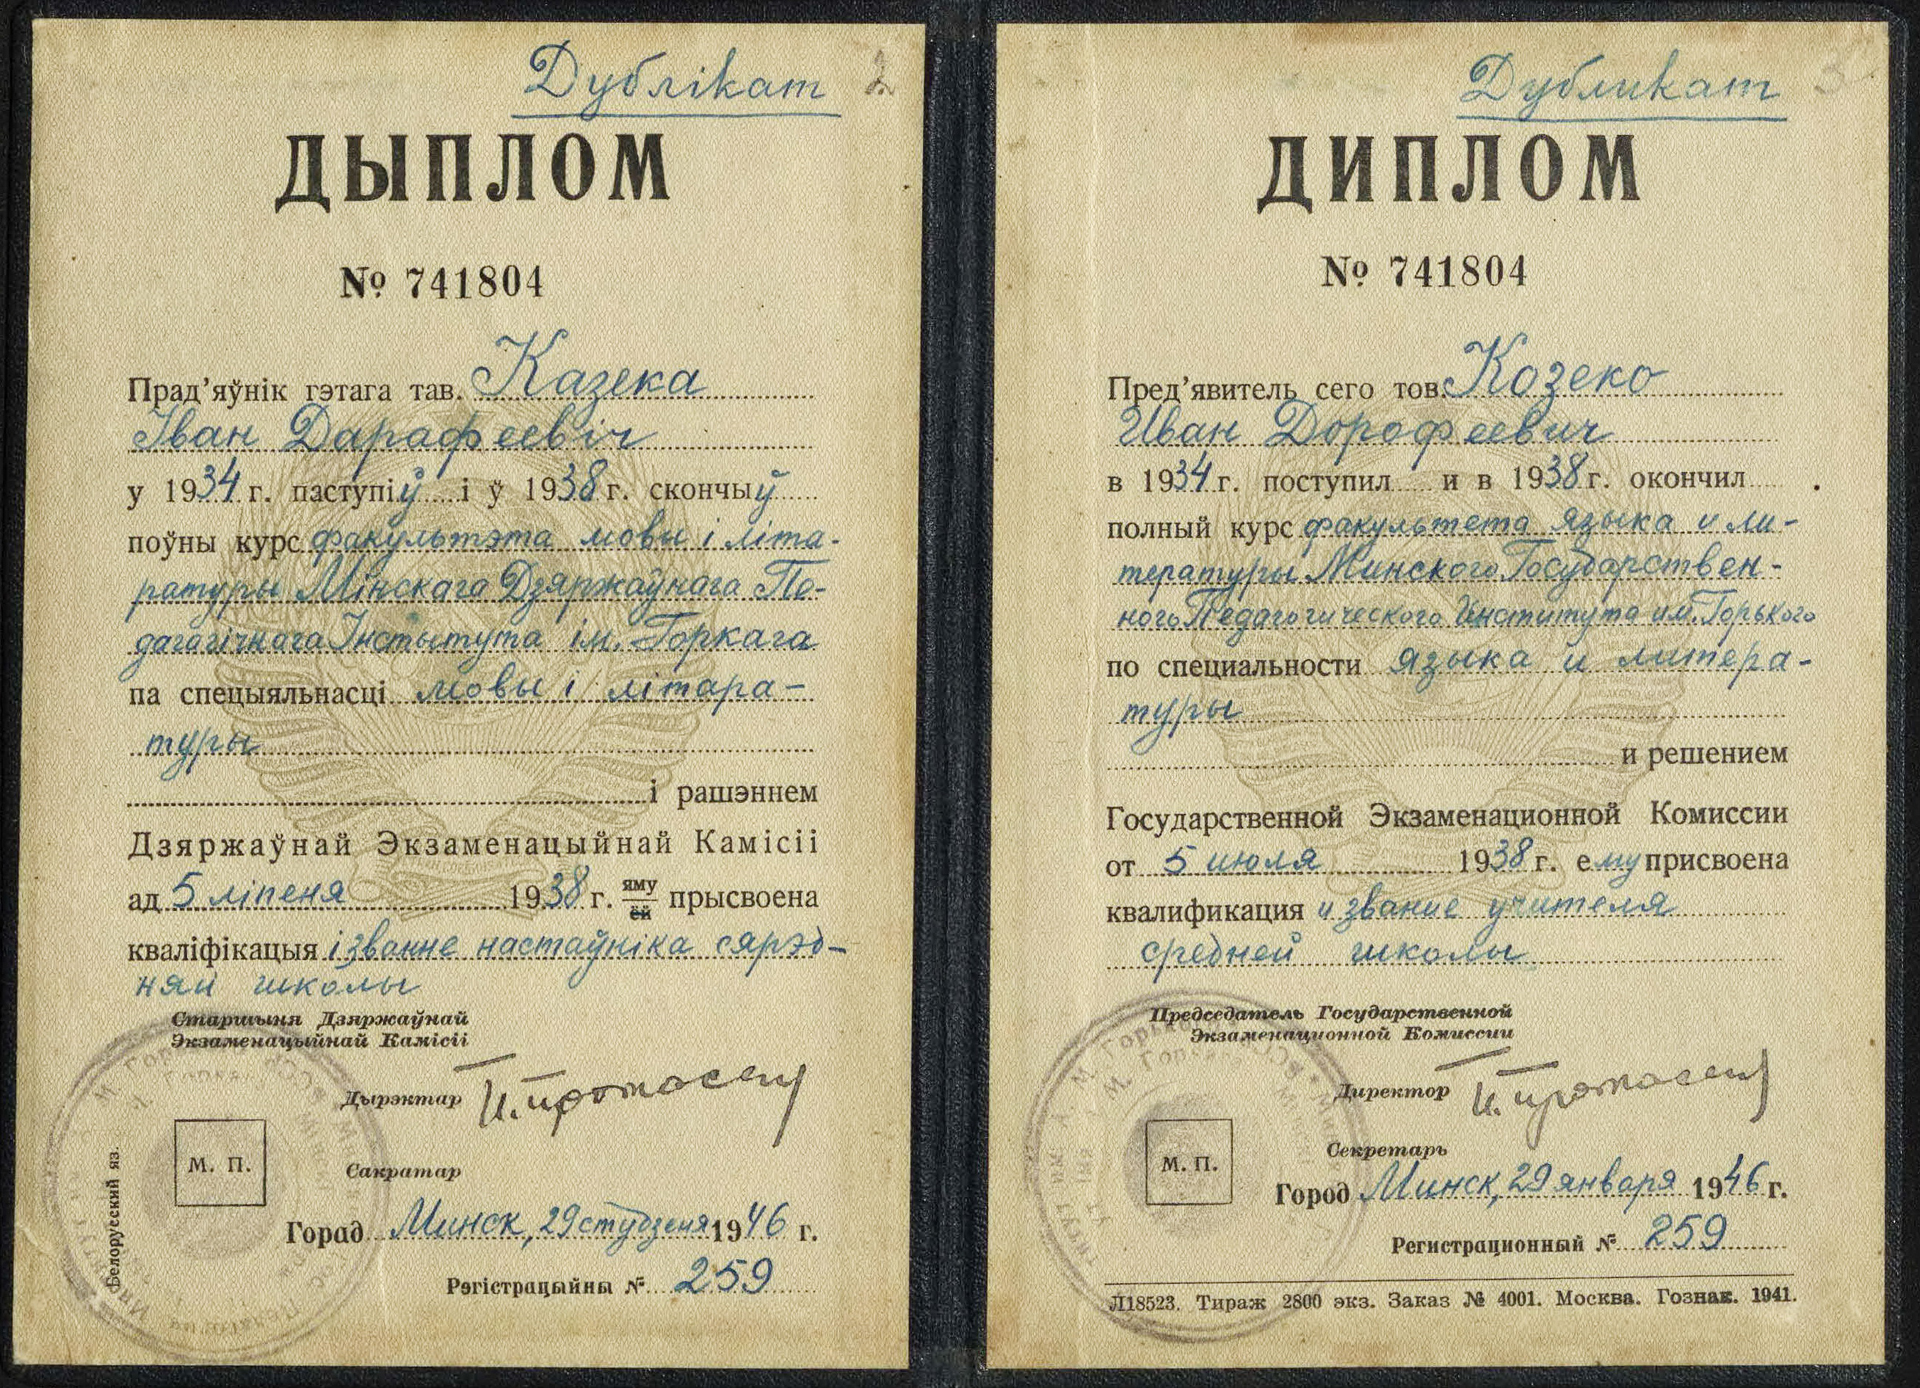 Дублікат 2.
ДЫПЛОМ
№ 741804
Прад'яўнік гэтага тав. Казека
Іван Дарафеевіч
у 1934 г. паступіў і ў 1938 г. скончыў
поўны курс факультэта мовы і літа-
ратуры Мінскага Дзяржаўнага Пе-
дагагічнага Інстытута ім. Горкага
па спецыяльнасці мовы і літара-
туры
і рашэннем
Дзяржаўнай Экзаменацыйнай Камісіі
ад 5 ліпеня 1938 г. яму/ёй прысвоена
кваліфікацыя і званне настаўніка сярэд-
няй школы
Старшыня Дзяржаўнай
Экзаменацыйнай Камісіі
Дырэктар
М. П.
Сакратар
Горад Минск, 29 студзеня 1946 г.
Рэгістрацыйны № 259
Белорусский яз.
Дубликат 3
ДИПЛОМ
№ 741804
Пред'явитель сего тов. Козеко
Иван Дорофеевич
в 1934 г. поступил и в 1938 г. окончил
полный курс факультета языка и ли-
тературы Минского Государствен-
ного Педагогического Института им. Горького
по специальности языка и литера-
туры
и решением
Государственной Экзаменационной Комиссии
от 5 июля 1938 г. ему присвоена
квалификация и звание учителя
средней школы
Председатель Государственной
Экзаменационной Комиссии
Директор
М. П.
Секретарь
Город Минск, 29 января 1946 г.
Регистрационный № 259
Л18523. Тираж 2800 экз. Заказ № 4001. Москва. Гознак. 1941.